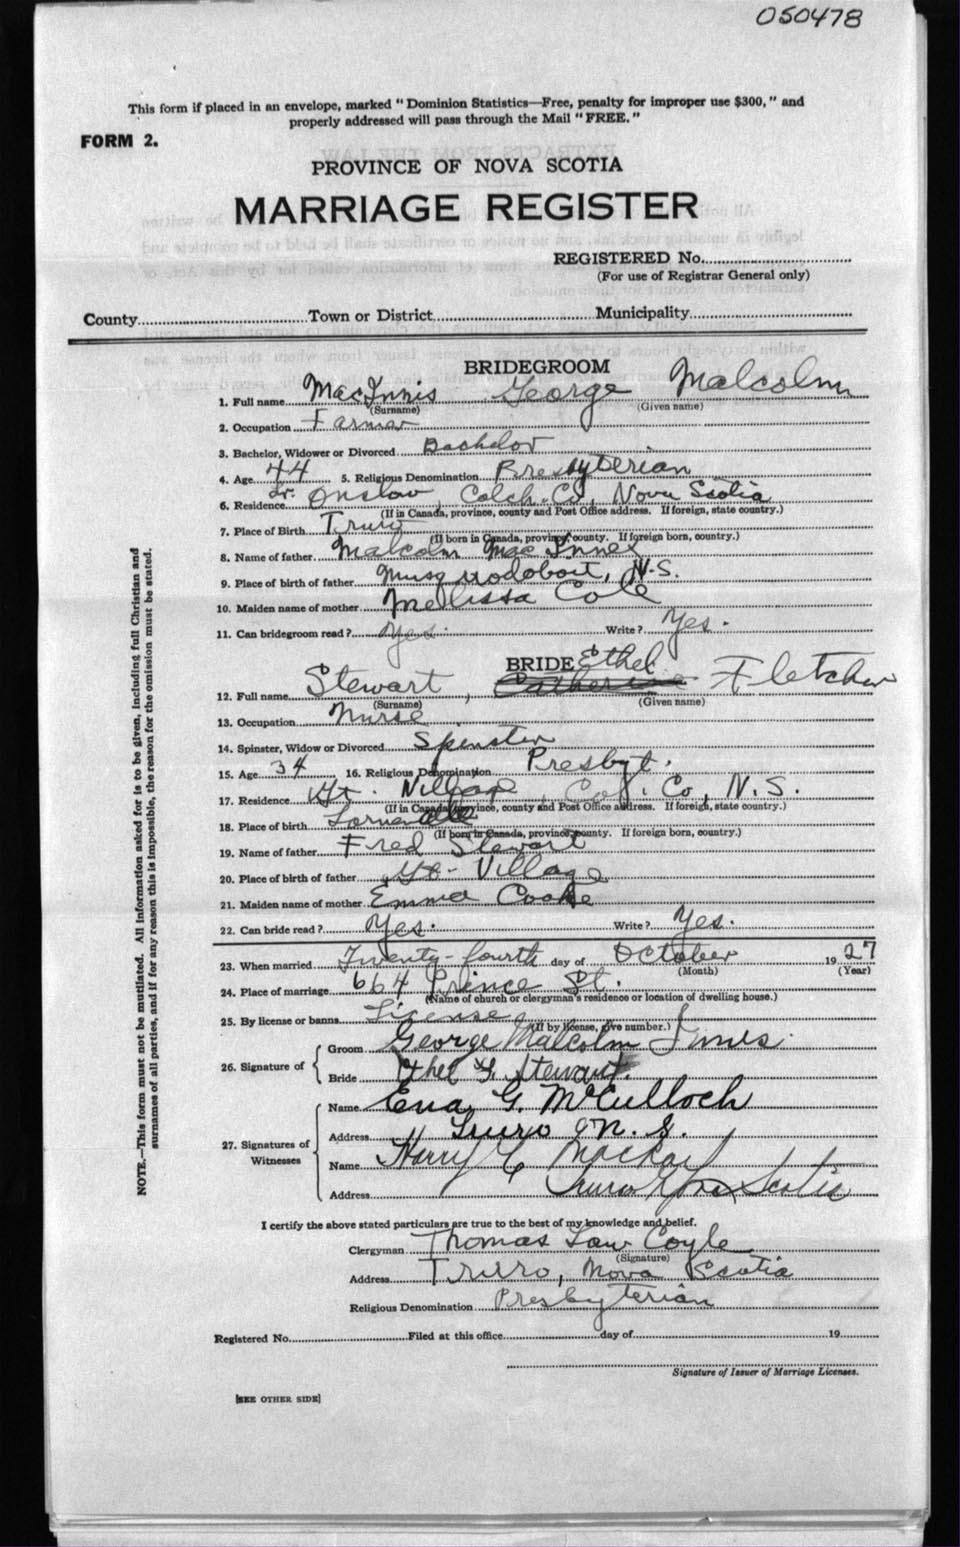 050478
This form if placed in an envelope, marked "Dominion Statistics—Free, penalty for improper use $300," and
properly addressed will pass through the Mail "FREE."
FORM 2.
PROVINCE OF NOVA SCOTIA
MARRIAGE REGISTER
REGISTERED No.
(For use of Registrar General only)
County Town or District Municipality
BRIDEGROOM
1. Full name MacInnis George Malcolm
(Surname) (Given name)
2. Occupation Farmer
3. Bachelor, Widower or Divorced Bachelor
4. Age 44 5. Religious Denomination Presbyterian
6. Residence Onslow, Colch. Co, Nova Scotia
(If in Canada, province, county and Post Office address. If foreign, state country.)
7. Place of Birth Truro
(If born in Canada, province, county. If foreign born, country.)
8. Name of father Malcolm MacInnes
9. Place of birth of father Musquodoboit, N.S.
10. Maiden name of mother Mellissa Cole
11. Can bridegroom read? Yes. Write? Yes.
BRIDE Ethel
12. Full name Stewart, Catherine Fletcher
(Surname) (Given name)
13. Occupation Nurse
14. Spinster, Widow or Divorced Spinster
15. Age 34 16. Religious Denomination Presbyt.
17. Residence Village, Col. Co, N.S.
(If in Canada, province, county and Post Office address. If foreign, state country.)
18. Place of birth
(If born in Canada, province, county. If foreign born, country.)
19. Name of father Fred Stewart
20. Place of birth of father Village
21. Maiden name of mother Emma Cooke
22. Can bride read? Yes. Write? Yes.
23. When married Twenty-fourth day of October 1927
(Month) (Year)
24. Place of marriage 664 Prince St.
(Name of church or clergyman's residence or location of dwelling house.)
25. By license or banns License
(If by license, give number.)
26. Signature of
Groom George Malcolm Innis
Bride Ethel F. Stewart.
27. Signatures of Witnesses
Name Ena G. McCulloch
Address Truro N.S.
Name Harry C Mackay
Address Truro Nova Scotia
I certify the above stated particulars are true to the best of my knowledge and belief.
Clergyman Thomas Law Coyle
(Signature)
Address Truro, Nova Scotia
Religious Denomination Presbyterian
Registered No. Filed at this office day of 19
Signature of Issuer of Marriage Licenses.
[SEE OTHER SIDE]
NOTE.—This form must not be mutilated. All information asked for is to be given, including full Christian and
surnames of all parties, and if for any reason this is impossible, the reason for the omission must be stated.